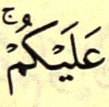 عَلَيْكُمْۚ